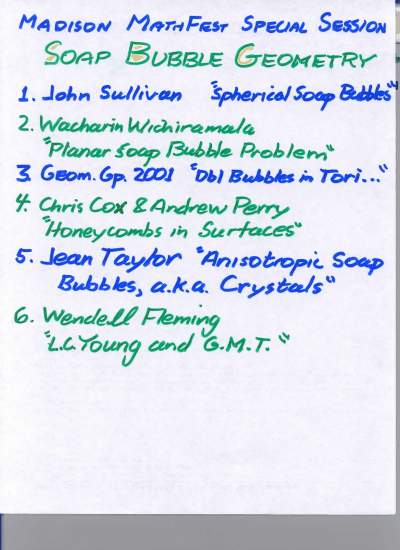 MADISON MATHFEST SPECIAL SESSION
SOAP BUBBLE GEOMETRY
1. John Sullivan "Spherical Soap Bubbles"
2. Wacharin Wichiramala
"Planar Soap Bubble Problem"
3. Geom. Gp. 2001 "Dbl Bubbles in Tori..."
4. Chris Cox & Andrew Perry
"Honeycombs in Surfaces"
5. Jean Taylor "Anisotropic Soap
Bubbles, a.k.a. Crystals"
6. Wendell Fleming
"L.C. Young and G.M.T."